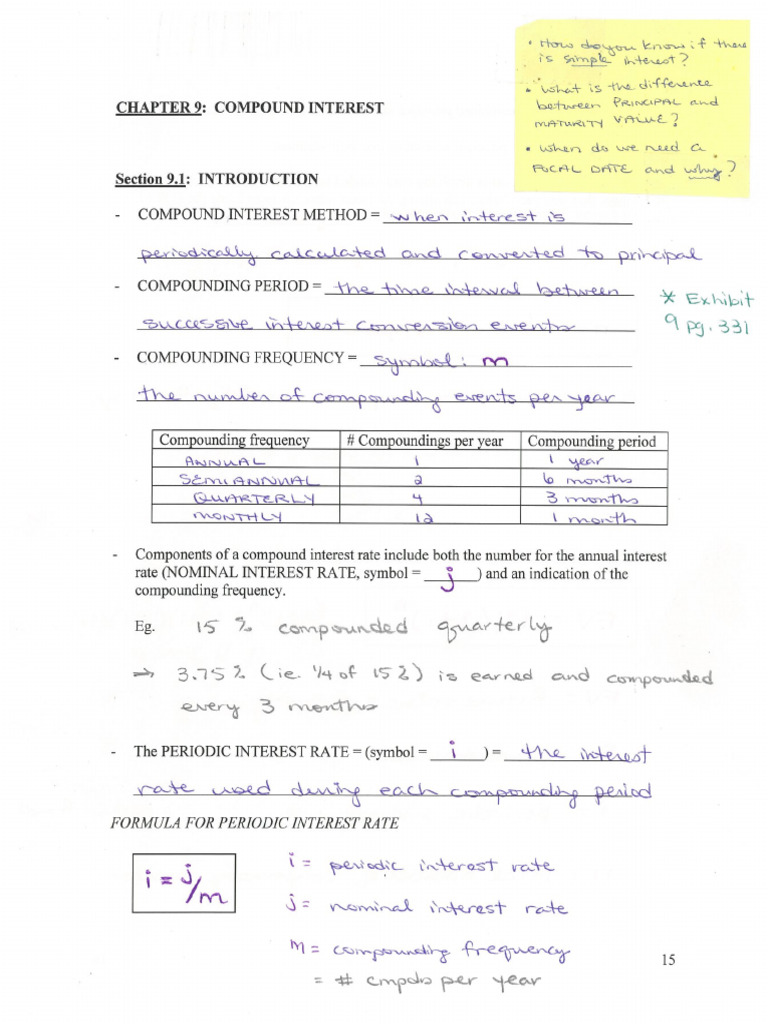 • How do you know if there
is simple interest?
• What is the difference
between PRINCIPAL and
MATURITY VALUE?
• when do we need a
FOCAL DATE and why?
CHAPTER 9: COMPOUND INTEREST
Section 9.1: INTRODUCTION
- COMPOUND INTEREST METHOD = when interest is
periodically calculated and converted to principal
- COMPOUNDING PERIOD = the time interval between
successive interest conversion events
* Exhibit
9 pg. 331
- COMPOUNDING FREQUENCY = symbol: m
the number of compounding events per year
Compounding frequency # Compoundings per year Compounding period
ANNUAL 1 1 year
SEMIANNUAL 2 6 months
QUARTERLY 4 3 months
MONTHLY 12 1 month
- Components of a compound interest rate include both the number for the annual interest
rate (NOMINAL INTEREST RATE, symbol = j ) and an indication of the
compounding frequency.
Eg. 15 % compounded quarterly
→ 3.75% (ie. 1/4 of 15%) is earned and compounded
every 3 months
- The PERIODIC INTEREST RATE = (symbol = i ) = the interest
rate used during each compounding period
FORMULA FOR PERIODIC INTEREST RATE
i = j/m
i = periodic interest rate
j = nominal interest rate
m = compounding frequency
= # cmpds per year
15